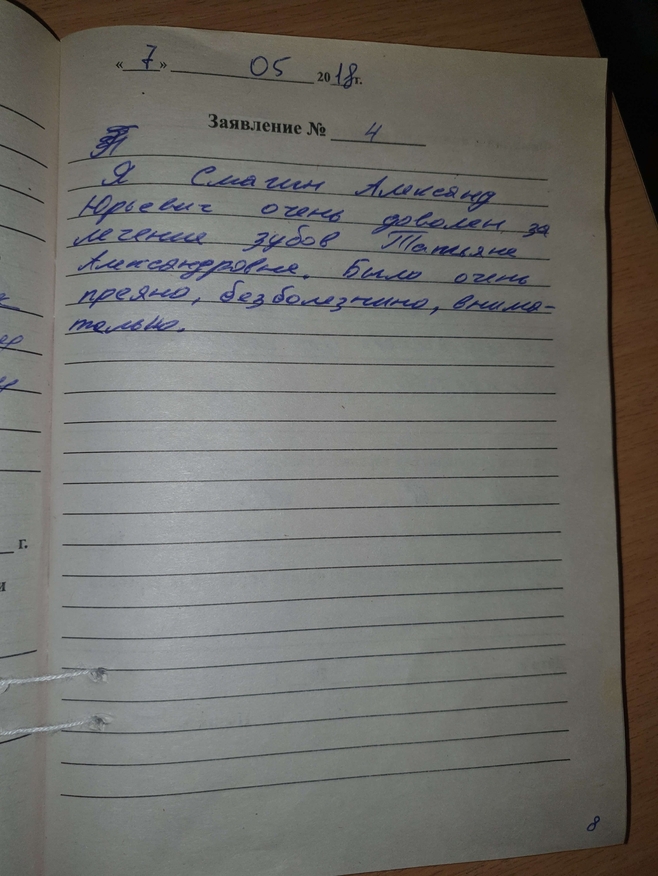 « 7 » 05 2018 г.
Заявление № 4
Я Смагин Александ
Юрьевич очень доволен за
лечение зубов Татьяне
Александровне. Было очень
преяно, безболезнино, внима-
тельно.
г.
и
8